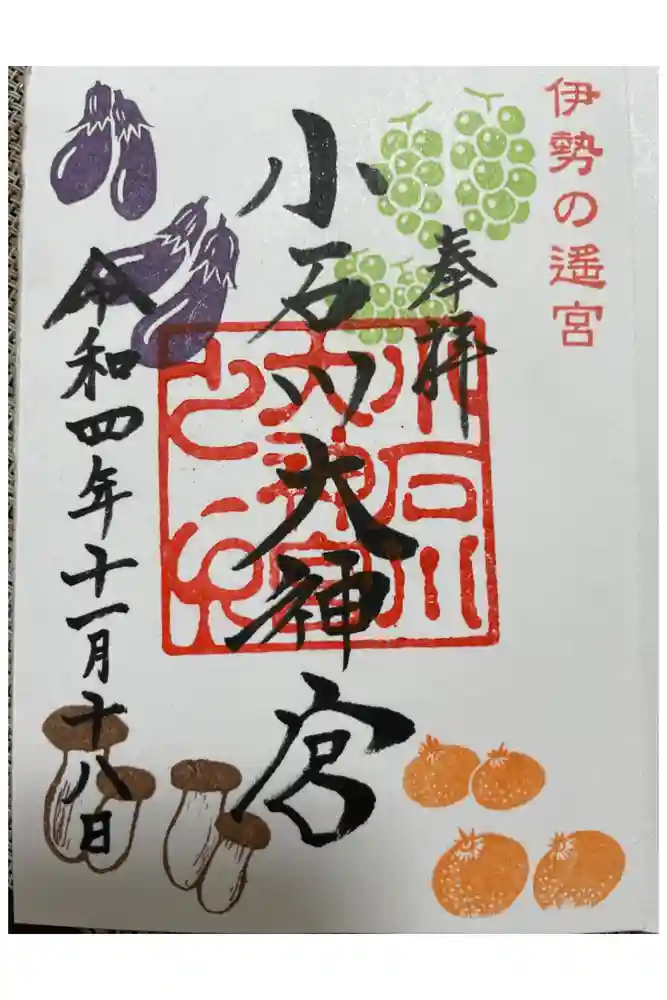 伊勢の遥宮
奉拝
小石川大神宮
小石川
大神宮
之印
令和四年十一月十八日